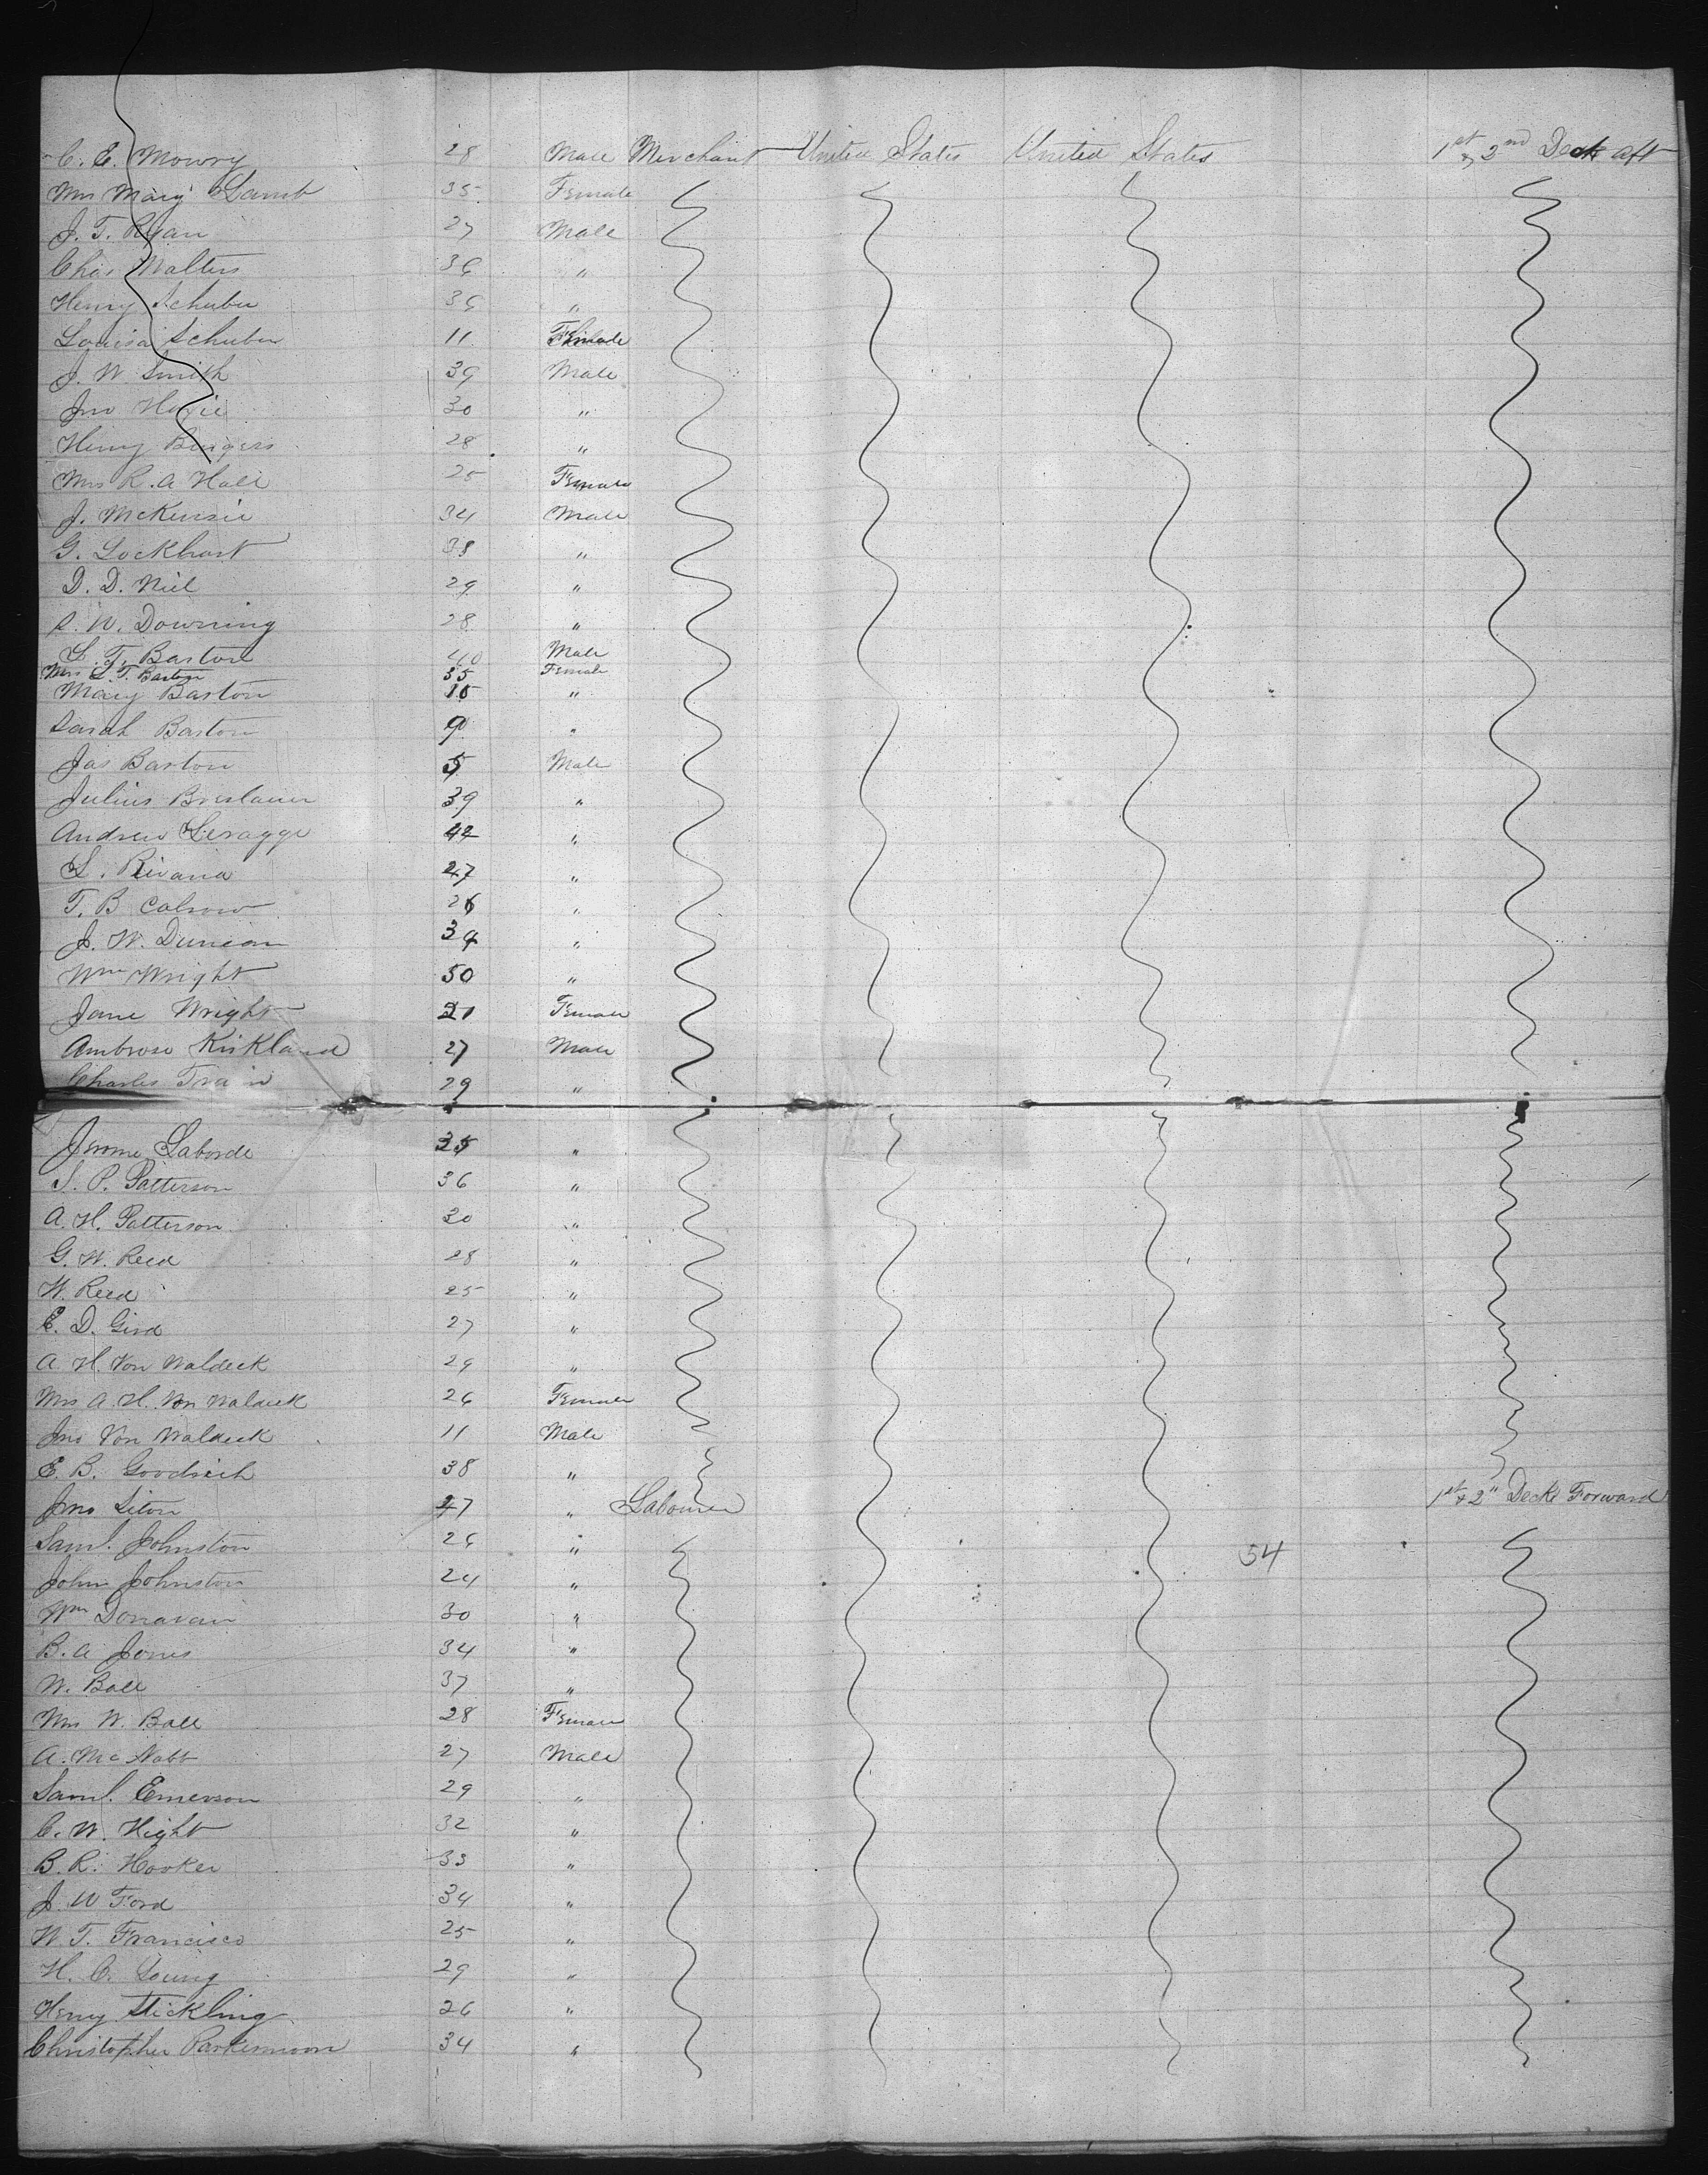 C. E. Mowry 28 Male Merchant United States United States 1st & 2nd Deck aft
Mrs Mary Lamb 35 Female
J. T. Ryan 27 Male
Chas Walters 36 "
Henry Schuber 36 "
Louisa Schuber 11 Female
J. W Smith 39 Male
Jno Hoxie 30 "
Henry Burgess 28 "
Mrs R. A Hall 25 Female
J. McKensie 34 Male
G. Lockhart 38 "
D. D. Niel 29 "
S. W. Downing 28 "
L. T. Barton 40 Male
Mrs L. T. Barton 35 Female
Mary Barton 15 "
Sarah Barton 9 "
Jas Barton 5 Male
Julius Breslauer 39 "
Andrew Leraggi 42 "
L. Rivana 47 "
T. B 26 "
J. W. Duncan 34 "
Wm Wright 50 "
Jane Wright 21 Female
Ambrose Kirkland 27 Male
Charles Train 29 "
Jerome Laborde 35 "
S. P. Patterson 36 "
A. H. Patterson 30 "
G. W. Reed 28 "
W. Reed 25 "
E. D. Gird 27 "
A. H. Von Waldeck 29 "
Mrs A. H. Von Waldeck 26 Female
Jno Von Waldeck 11 Male
E. B. Goodrich 38 "
Jno Liton 47 " Labourer 1st & 2" Decks Forward
Saml. Johnston 26 " 54
John Johnston 24 "
Wm Donavan 30 "
B. A Jones 34 "
W. Ball 37 "
Mrs W. Ball 28 Female
A. McNabb 27 Male
Saml. Emerson 29 "
C. W. Hight 32 "
B. R. Hooker 33 "
J. W Ford 34 "
W. T. Francisco 25 "
H. C. Young 29 "
Henry Stickling 26 "
Christopher Parkermoon 34 "